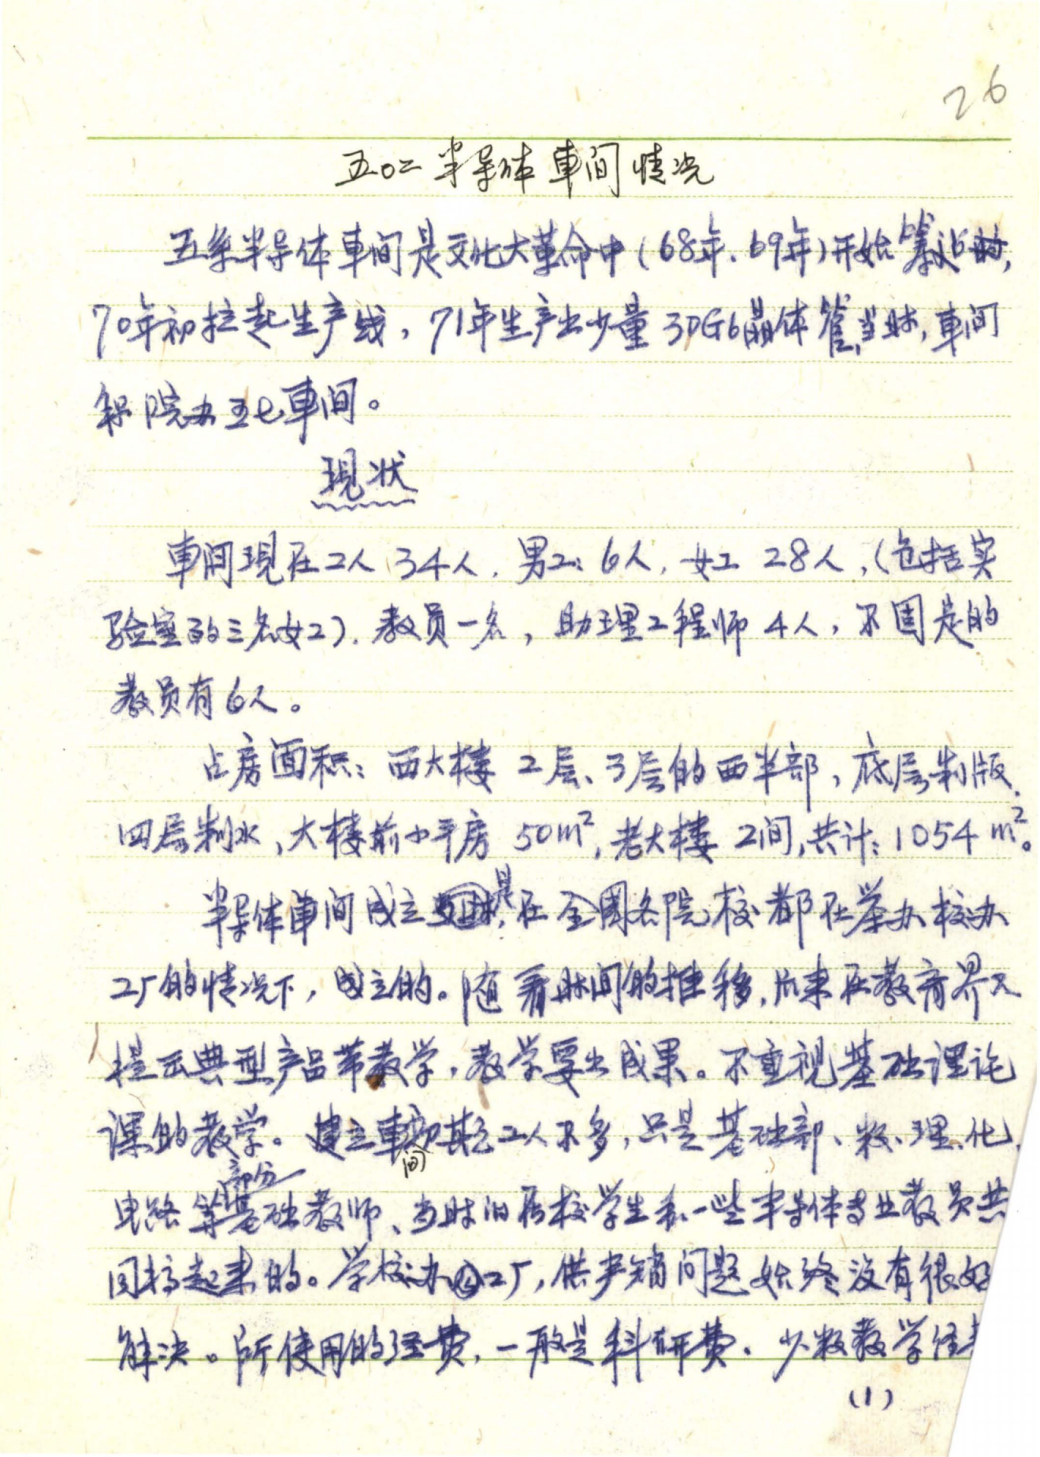 26
五〇二半导体車间情况
五系半导体車间是文化大革命中(68年、69年)开始筹建的,
70年初拉起生产线,71年生产出少量3DG6晶体管,当时,車间
称院办五七車间。
現状
車间現在工人34人,男工:6人,女工28人,(包括实
验室的三名女工).教员一名,助理工程师4人,不固定的
教员有6人。
占房面积:西大楼2层、3层的西半部,底层制版,
四层制水,大楼前小平房50m²,老大楼2间,共计:1054m²。
半导体車间成立是在全國各院校都在举办校办
工厂的情况下,成立的。随着时间的推移,后来在教育界又
提出典型产品带教学,教学要出成果。不重視基础理论
课的教学。建立車间初期工人不多,只是基础部、数、理、化,
电路等部分基础教师、当时旧在校学生和一些半导体专业教员共
同搞起来的。学校办工厂,供产销问题始终没有很好
解决。所使用的经费,一般是科研费。少数教学经
(1)